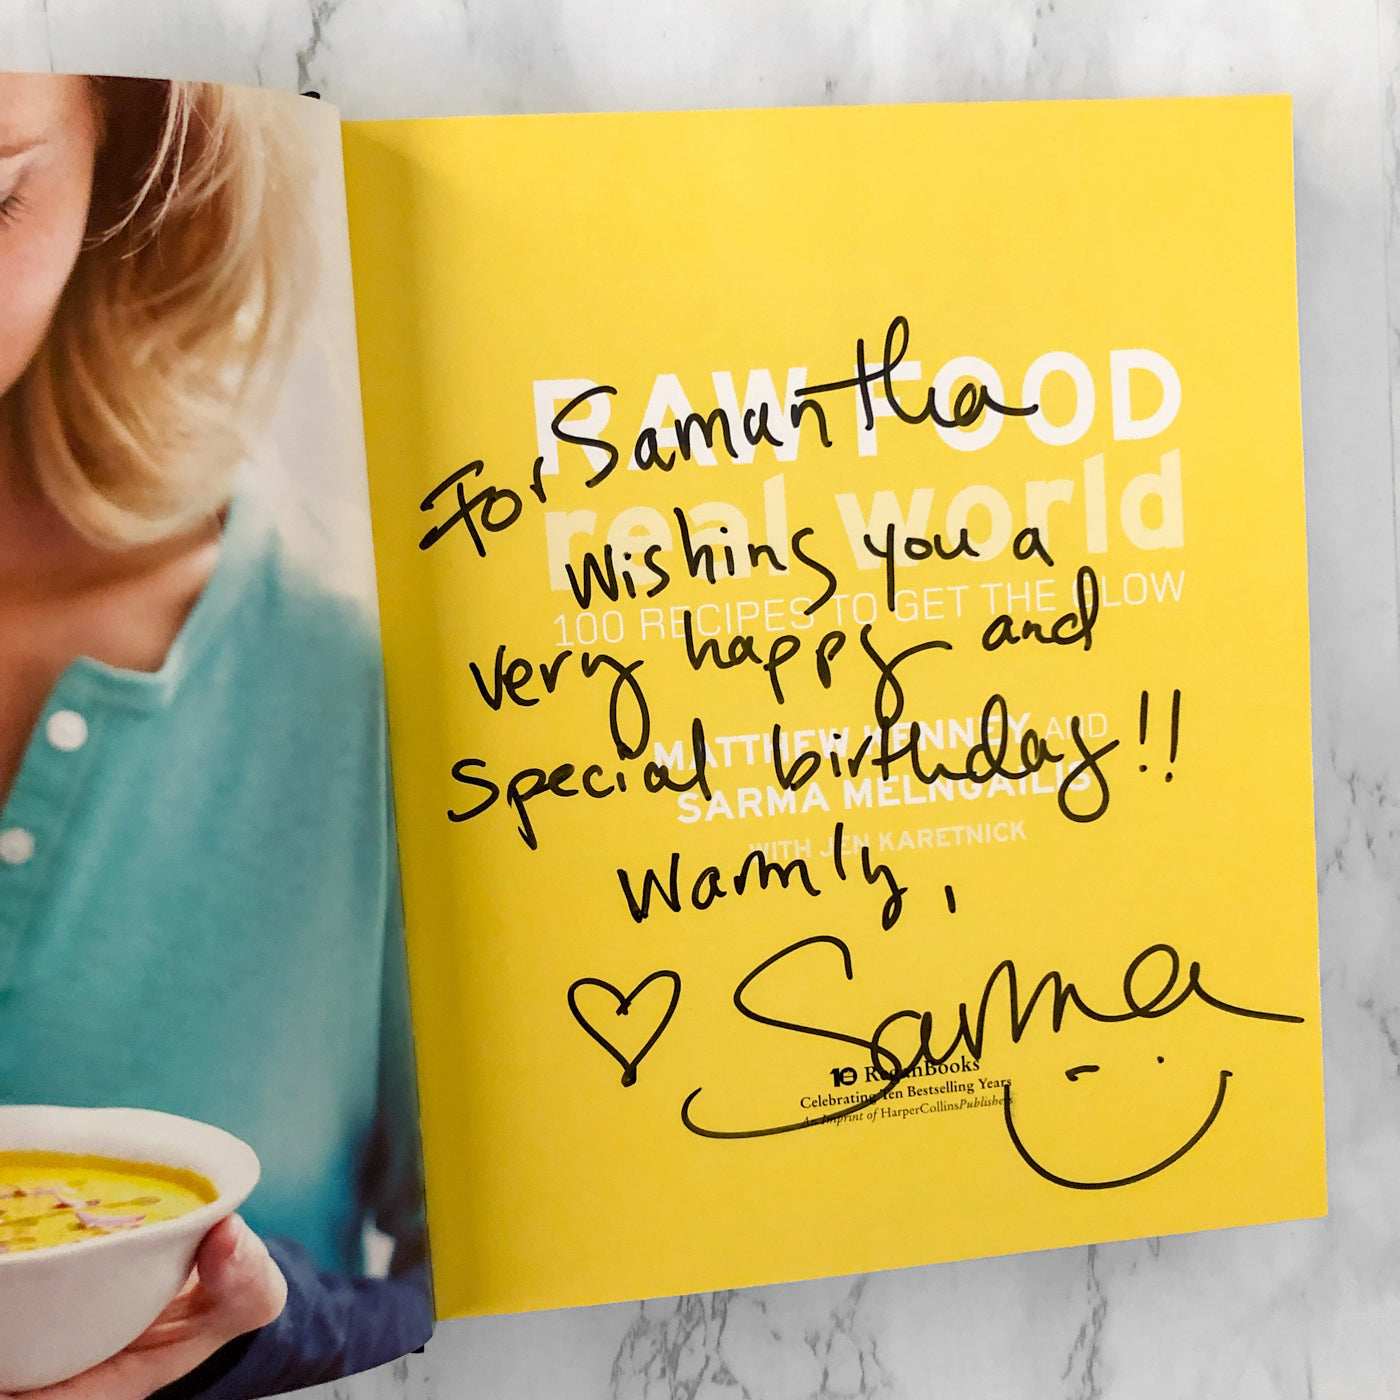 RAW FOOD
real world
100 RECIPES TO GET THE GLOW
MATTHEW KENNEY AND
SARMA MELNGAILIS
WITH JEN KARETNICK
For Samantha
Wishing you a
very happy and
special birthday!!
Warmly,
Sarma
10 ReganBooks
Celebrating Ten Bestselling Years
An Imprint of HarperCollinsPublishers